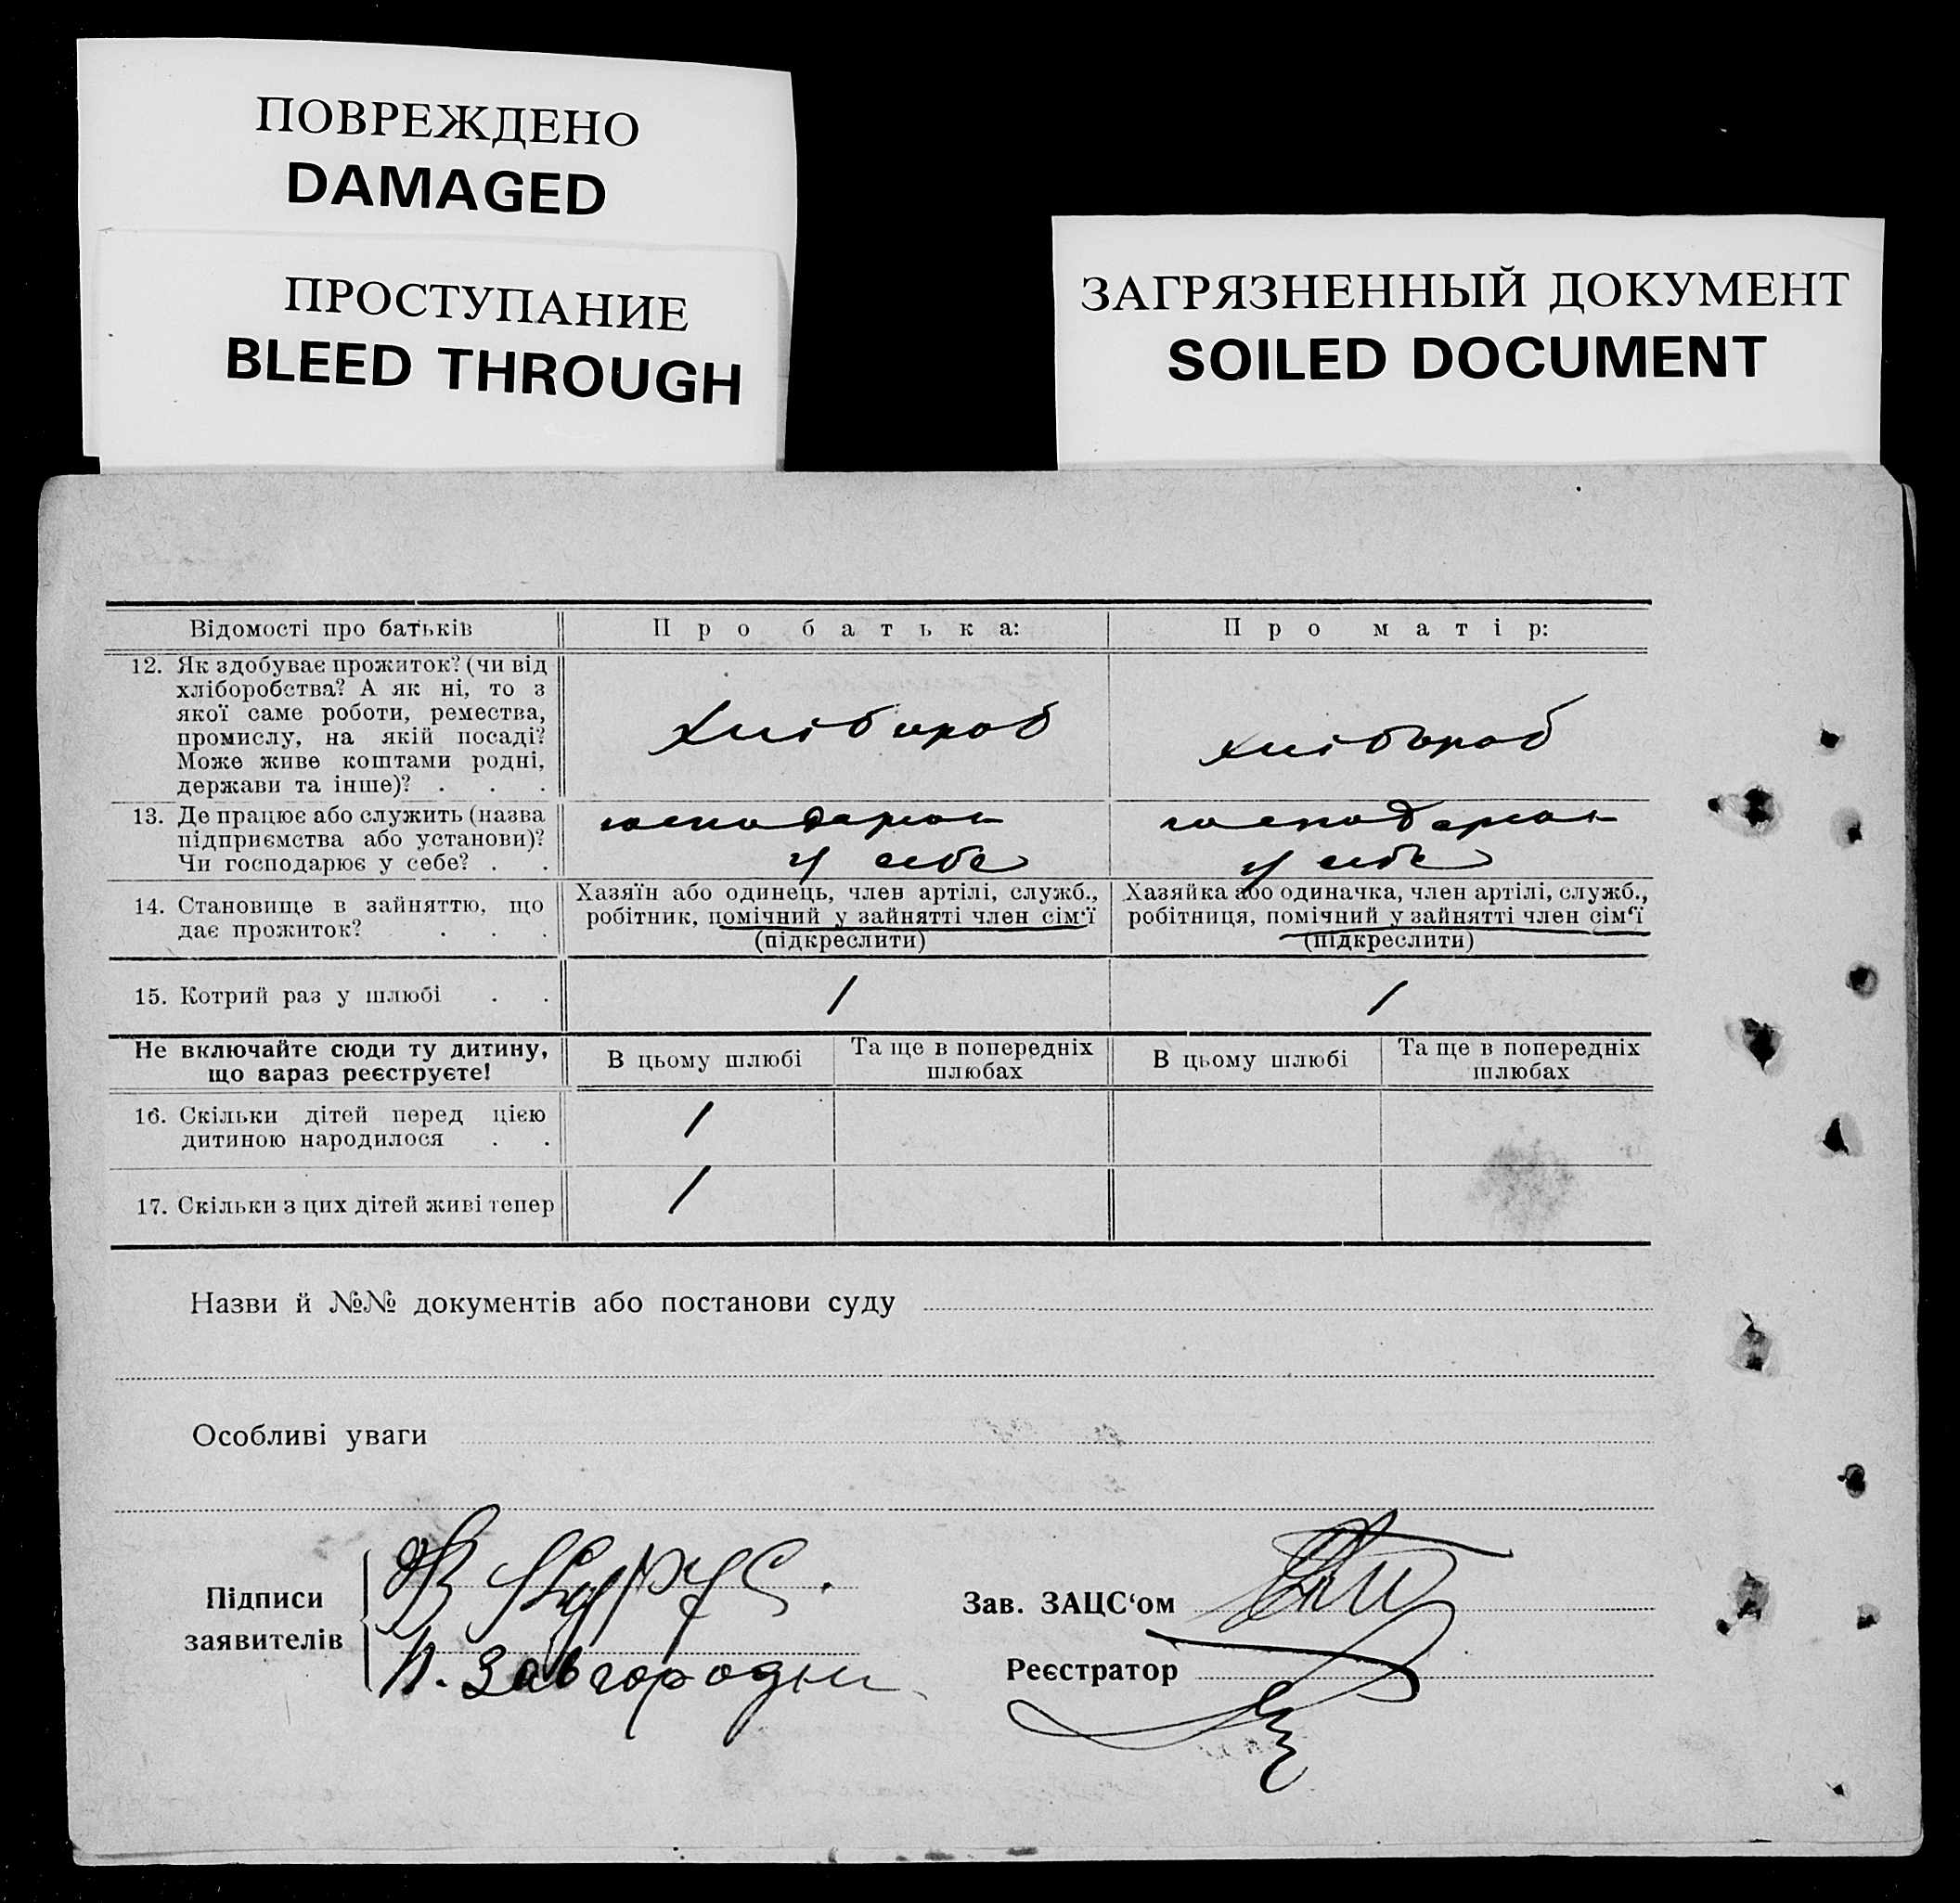 ПОВРЕЖДЕНО
DAMAGED
ПРОСТУПАНИЕ
BLEED THROUGH
ЗАГРЯЗНЕННЫЙ ДОКУМЕНТ
SOILED DOCUMENT
Відомості про батьків
Про батька:
Про матір:
12. Як здобуває прожиток? (чи від
хліборобства? А як ні, то з
якої саме роботи, ремества,
промислу, на якій посаді?
Може живе коштами родні,
держави та інше)? . . .
хлібороб
хлібороб
13. Де працює або служить (назва
підприємства або установи)?
Чи господарює у себе? . .
господарює
у себе
господарює
у себе
14. Становище в зайняттю, що
дає прожиток? . . .
Хазяїн або одинець, член артілі, служб.,
робітник, помічний у зайнятті член сім'ї
(підкреслити)
Хазяйка або одиначка, член артілі, служб.,
робітниця, помічний у зайнятті член сім'ї
(підкреслити)
15. Котрий раз у шлюбі . .
1
1
Не включайте сюди ту дитину,
що зараз реєструєте!
В цьому шлюбі
Та ще в попередніх
шлюбах
В цьому шлюбі
Та ще в попередніх
шлюбах
16. Скільки дітей перед цією
дитиною народилося . .
1
17. Скільки з цих дітей живі тепер
1
Назви й №№ документів або постанови суду
Особливі уваги
Підписи
заявителів
П. Завгородни
Зав. ЗАЦС‘ом
Реєстратор